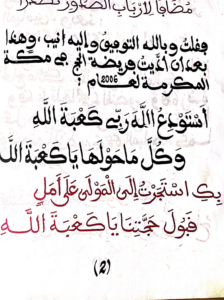 مضافا لأرباب الصدور تصدرا
فقلت وبالله التوفيق وإليه أنيب، وهذا
بعد أن أديت فريضة الحج في مكة
المكرمة لعام: 2006
أَسْتَوْدِعُ اللَّهَ رَبِّي كَعْبَةَ اللَّهِ
وَكُلَّ مَا حَوْلَهَا يَا كَعْبَةَ اللَّه
بِكِ اسْتَجَرْتُ إِلَى الْمَوْلَى عَلَى أَمَلٍ
قَبُولَ حَجَّتِنَا يَا كَعْبَةَ اللَّهِ
(2)